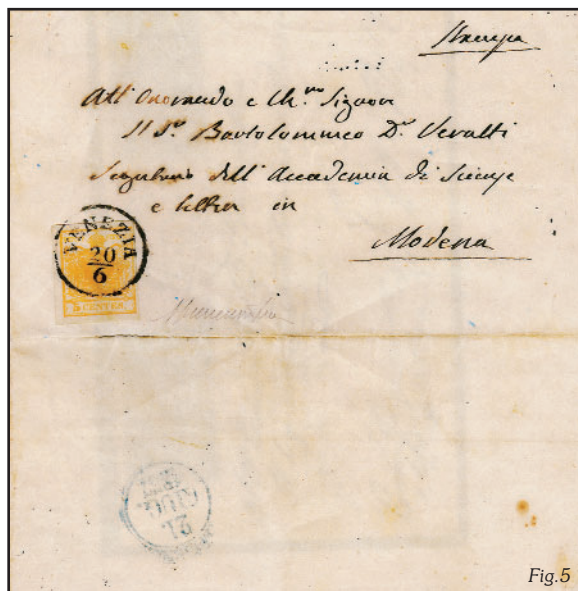 Stampa
All' Onorando e Ch.mo Signore
Il Sr. Bartolommeo Dr. Veratti
Segretario dell' Accademia di Scienze
e Lettere in
Modena
VENEZIA
20
6
5 CENTES.
21
GIUG.
Fig.5